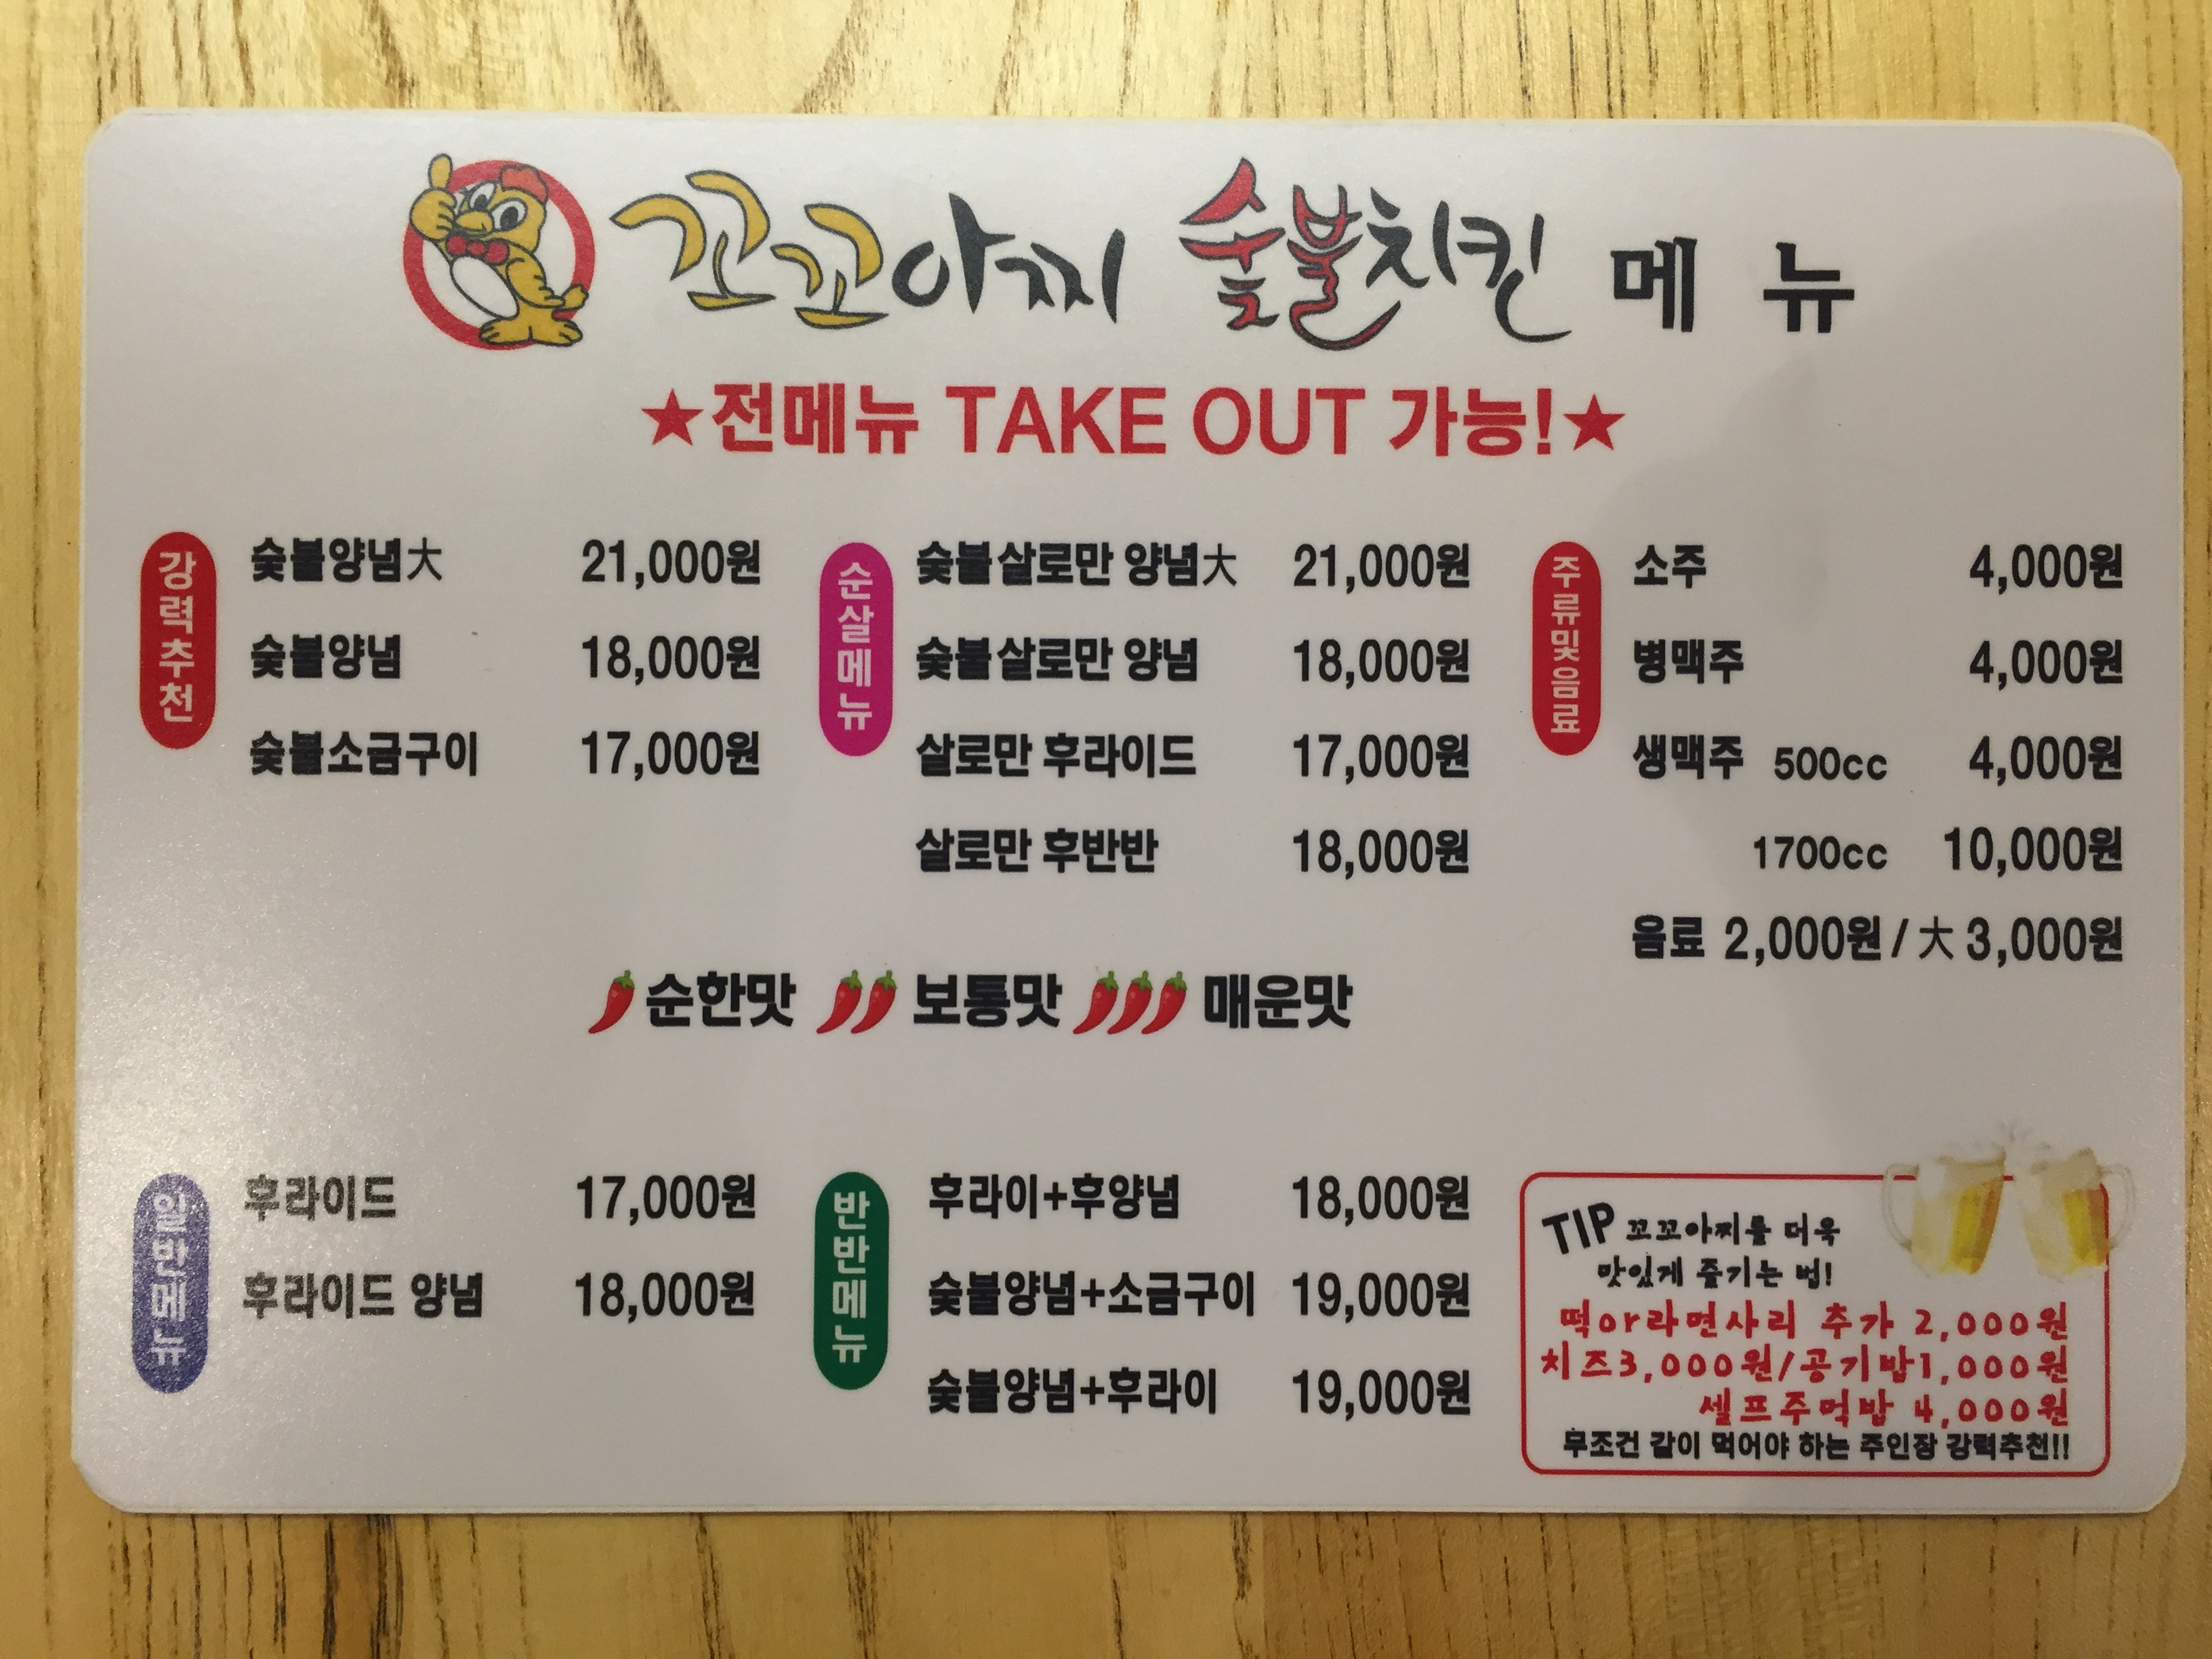 꼬꼬아찌 숯불치킨 메뉴
★전메뉴 TAKE OUT 가능!★
강력추천
숯불양념大 21,000원
숯불양념 18,000원
숯불소금구이 17,000원
순살메뉴
숯불살로만 양념大 21,000원
숯불살로만 양념 18,000원
살로만 후라이드 17,000원
살로만 후반반 18,000원
주류및음료
소주 4,000원
병맥주 4,000원
생맥주 500cc 4,000원
1700cc 10,000원
음료 2,000원 / 大 3,000원
순한맛 보통맛 매운맛
일반메뉴
후라이드 17,000원
후라이드 양념 18,000원
반반메뉴
후라이+후양념 18,000원
숯불양념+소금구이 19,000원
숯불양념+후라이 19,000원
TIP 꼬꼬아찌를 더욱
맛있게 즐기는 법!
떡or라면사리 추가 2,000원
치즈3,000원/공기밥1,000원
셀프주먹밥 4,000원
무조건 같이 먹어야 하는 주인장 강력추천!!